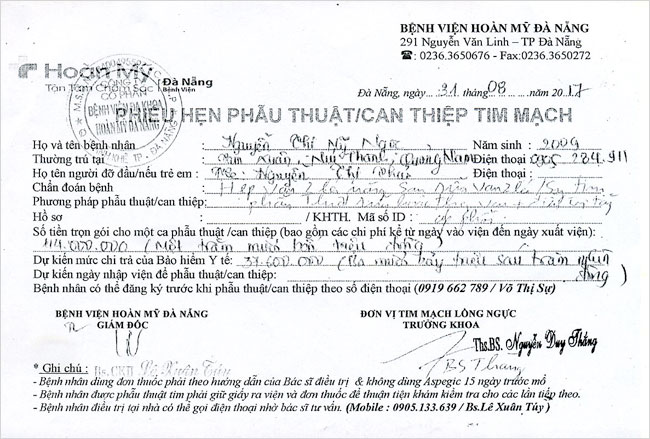 BỆNH VIỆN HOÀN MỸ ĐÀ NẴNG
291 Nguyễn Văn Linh – TP Đà Nẵng
☎: 0236.3650676 - Fax:0236.3650272
Hoàn Mỹ Đà Nẵng
Tận Tâm Chăm Sóc Bệnh viện
CÔNG TY CỔ PHẦN BỆNH VIỆN ĐA KHOA HOÀN MỸ ĐÀ NẴNG
Đà Nẵng, ngày 31 tháng 08 năm 2017
PHIẾU HẸN PHẪU THUẬT/CAN THIỆP TIM MẠCH
Họ và tên bệnh nhân : Nguyễn Thị Mỹ Ngọc Năm sinh : 2009
Thường trú tại : Tam Xuân, Núi Thành, Quảng Nam Điện thoại : 905 284 911
Họ tên người đỡ đầu/nếu trẻ em : Nguyễn Thị
Chẩn đoán bệnh : Hẹp van 2 lá nặng sau sửa van 2 lá / Suy tim
Phương pháp phẫu thuật/can thiệp:
Hồ sơ : / KHTH. Mã số ID :
Số tiền trọn gói cho một ca phẫu thuật /can thiệp (bao gồm các chi phí kể từ ngày vào viện đến ngày xuất viện):
114.000.000 ( Một trăm mười bốn triệu đồng )
Dự kiến mức chi trả của Bảo hiểm Y tế: 37.600.000 ( Ba mươi bảy triệu sáu trăm nghìn đồng )
Dự kiến ngày nhập viện để phẫu thuật/can thiệp:
Bệnh nhân có thể đăng ký trước khi phẫu thuật/can thiệp theo số điện thoại (0919 662 789 / Võ Thị Sự)
BỆNH VIỆN HOÀN MỸ ĐÀ NẴNG
GIÁM ĐỐC
ĐƠN VỊ TIM MẠCH LỒNG NGỰC
TRƯỞNG KHOA
Ths.BS. Nguyễn Duy Thắng
BS Thang
* Ghi chú : Bs.CKII
- Bệnh nhân dùng đơn thuốc phải theo hướng dẫn của Bác sĩ điều trị & không dùng Aspegic 15 ngày trước mổ
- Bệnh nhân được phẫu thuật tim phải giữ giấy ra viện và đơn thuốc để thuận tiện khám kiểm tra cho các lần tiếp theo.
- Bệnh nhân điều trị tại nhà có thể gọi điện thoại nhờ bác sĩ tư vấn. (Mobile : 0905.133.639 / Bs.Lê Xuân Túy )